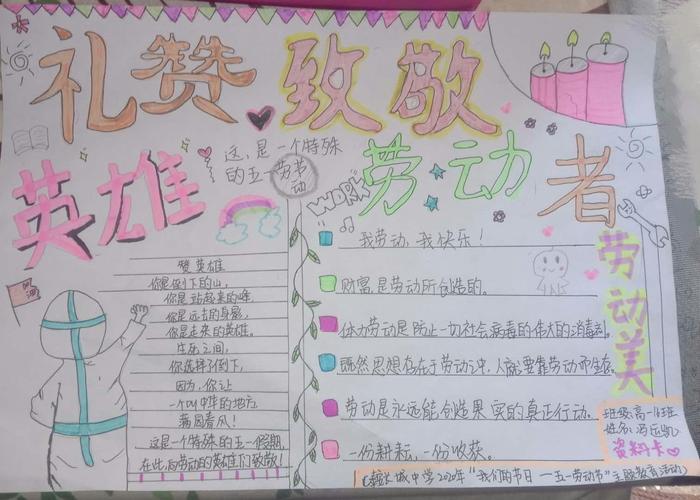 礼赞 致敬
英雄 劳动者
这,是一个特殊
的五一劳动节
WORK
赞英雄
你是倒下的山,
你是站起来的峰,
你是远去的身影,
你是走来的英雄。
生死之间,
你选择了倒下,
因为,你让
一个叫中华的地方
满园春风!
这是一个特殊的五一假期,
在此,向劳动的英雄们致敬!
我劳动,我快乐!
财富是劳动所创造的。
体力劳动是防止一切社会病毒的伟大的消毒剂。
既然思想存在于劳动之中,人就要靠劳动而生存。
劳动是永远能创造果实的真正行动。
一份耕耘,一份收获。
劳动美
班级:高一
资料卡
城中学
“我们的节日——五一劳动节”主题教育活动